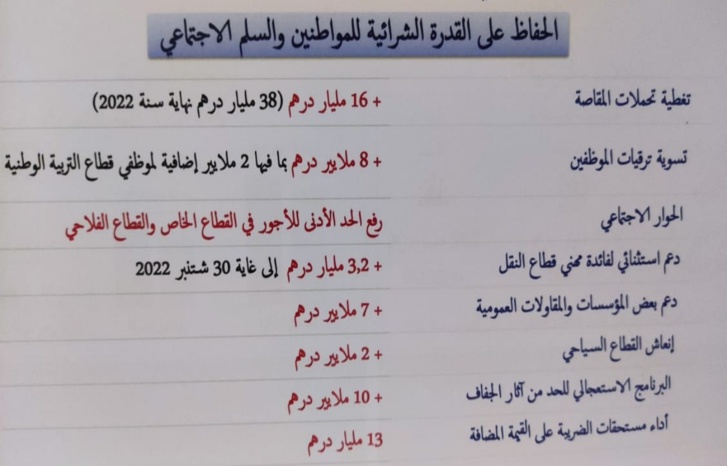 الحفاظ على القدرة الشرائية للمواطنين والسلم الاجتماعي
تغطية تحملات المقاصة + 16 مليار درهم (38 مليار درهم نهاية سنة 2022)
تسوية ترقيات الموظفين + 8 ملايير درهم بما فيها 2 ملايير إضافية لموظفي قطاع التربية الوطنية
الحوار الاجتماعي رفع الحد الأدنى للأجور في القطاع الخاص والقطاع الفلاحي
دعم استثنائي لفائدة مهنيي قطاع النقل + 3,2 مليار درهم إلى غاية 30 شتنبر 2022
دعم بعض المؤسسات والمقاولات العمومية + 7 ملايير درهم
إنعاش القطاع السياحي + 2 ملايير درهم
البرنامج الاستعجالي للحد من آثار الجفاف + 10 ملايير درهم
أداء مستحقات الضريبة على القيمة المضافة 13 مليار درهم